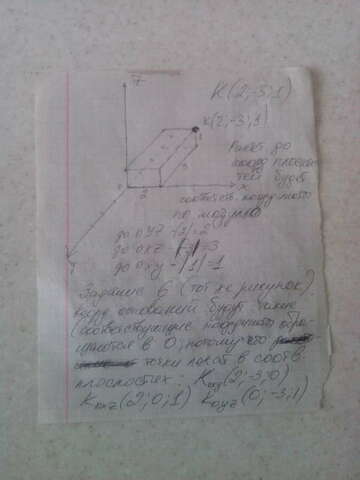 Z
К(2;-3;1)
К(2;-3;1)
1
3
2
x
y
до
коорд плоскос
тей будет
соответств. координата
по модулю
до OYZ - |2| = 2
до OXZ - 3
до OXY - |1| - 1
Задание 6 (тот же рисунок).
Коорд оснований будут такие
(соответствующие координаты обра-
щаются в 0, потому что
точки лежат в соотв.
плоскостях. Kxy (2;-3;0)
Koxz (2;0;1) Koyz (0;-3;1)